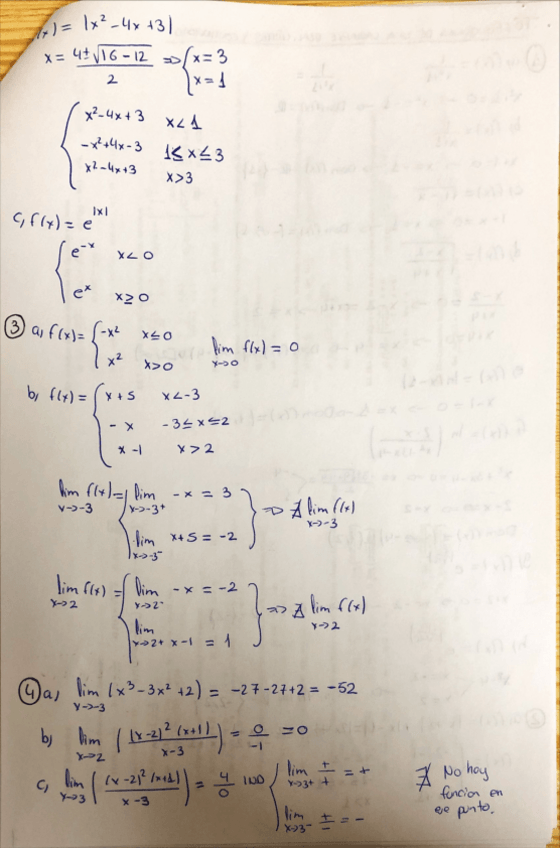 (x) = |x² - 4x + 3|
x = 4 ± √(16 - 12) / 2 ⇒ { x = 3
x = 1
x² - 4x + 3 x < 1
-x² + 4x - 3 1 ≤ x ≤ 3
x² - 4x + 3 x > 3
c, f(x) = e^|x|
e^-x x < 0
e^x x ≥ 0
③ a, f(x) = { -x² x ≤ 0
x² x > 0 lim x→0 f(x) = 0
b, f(x) = { x + 5 x < -3
- x -3 ≤ x ≤ 2
x - 1 x > 2
lim x→-3 f(x) = { lim x→-3⁺ -x = 3
lim x→-3⁻ x + 5 = -2 } ⇒ ∄ lim x→-3 f(x)
lim x→2 f(x) = { lim x→2⁻ -x = -2
lim x→2⁺ x - 1 = 1 } ⇒ ∄ lim x→2 f(x)
④ a, lim x→-3 (x³ - 3x² + 2) = -27 - 27 + 2 = -52
b, lim x→2 ((x-2)² (x+1) / x-3) = 0/-1 = 0
c, lim x→3 ((x-2)² (x+1) / x-3) = 4/0 IND { lim x→3⁺ +/+ = +
lim x→3⁻ +/- = -
∄ No hay
funcion en
ese punto.